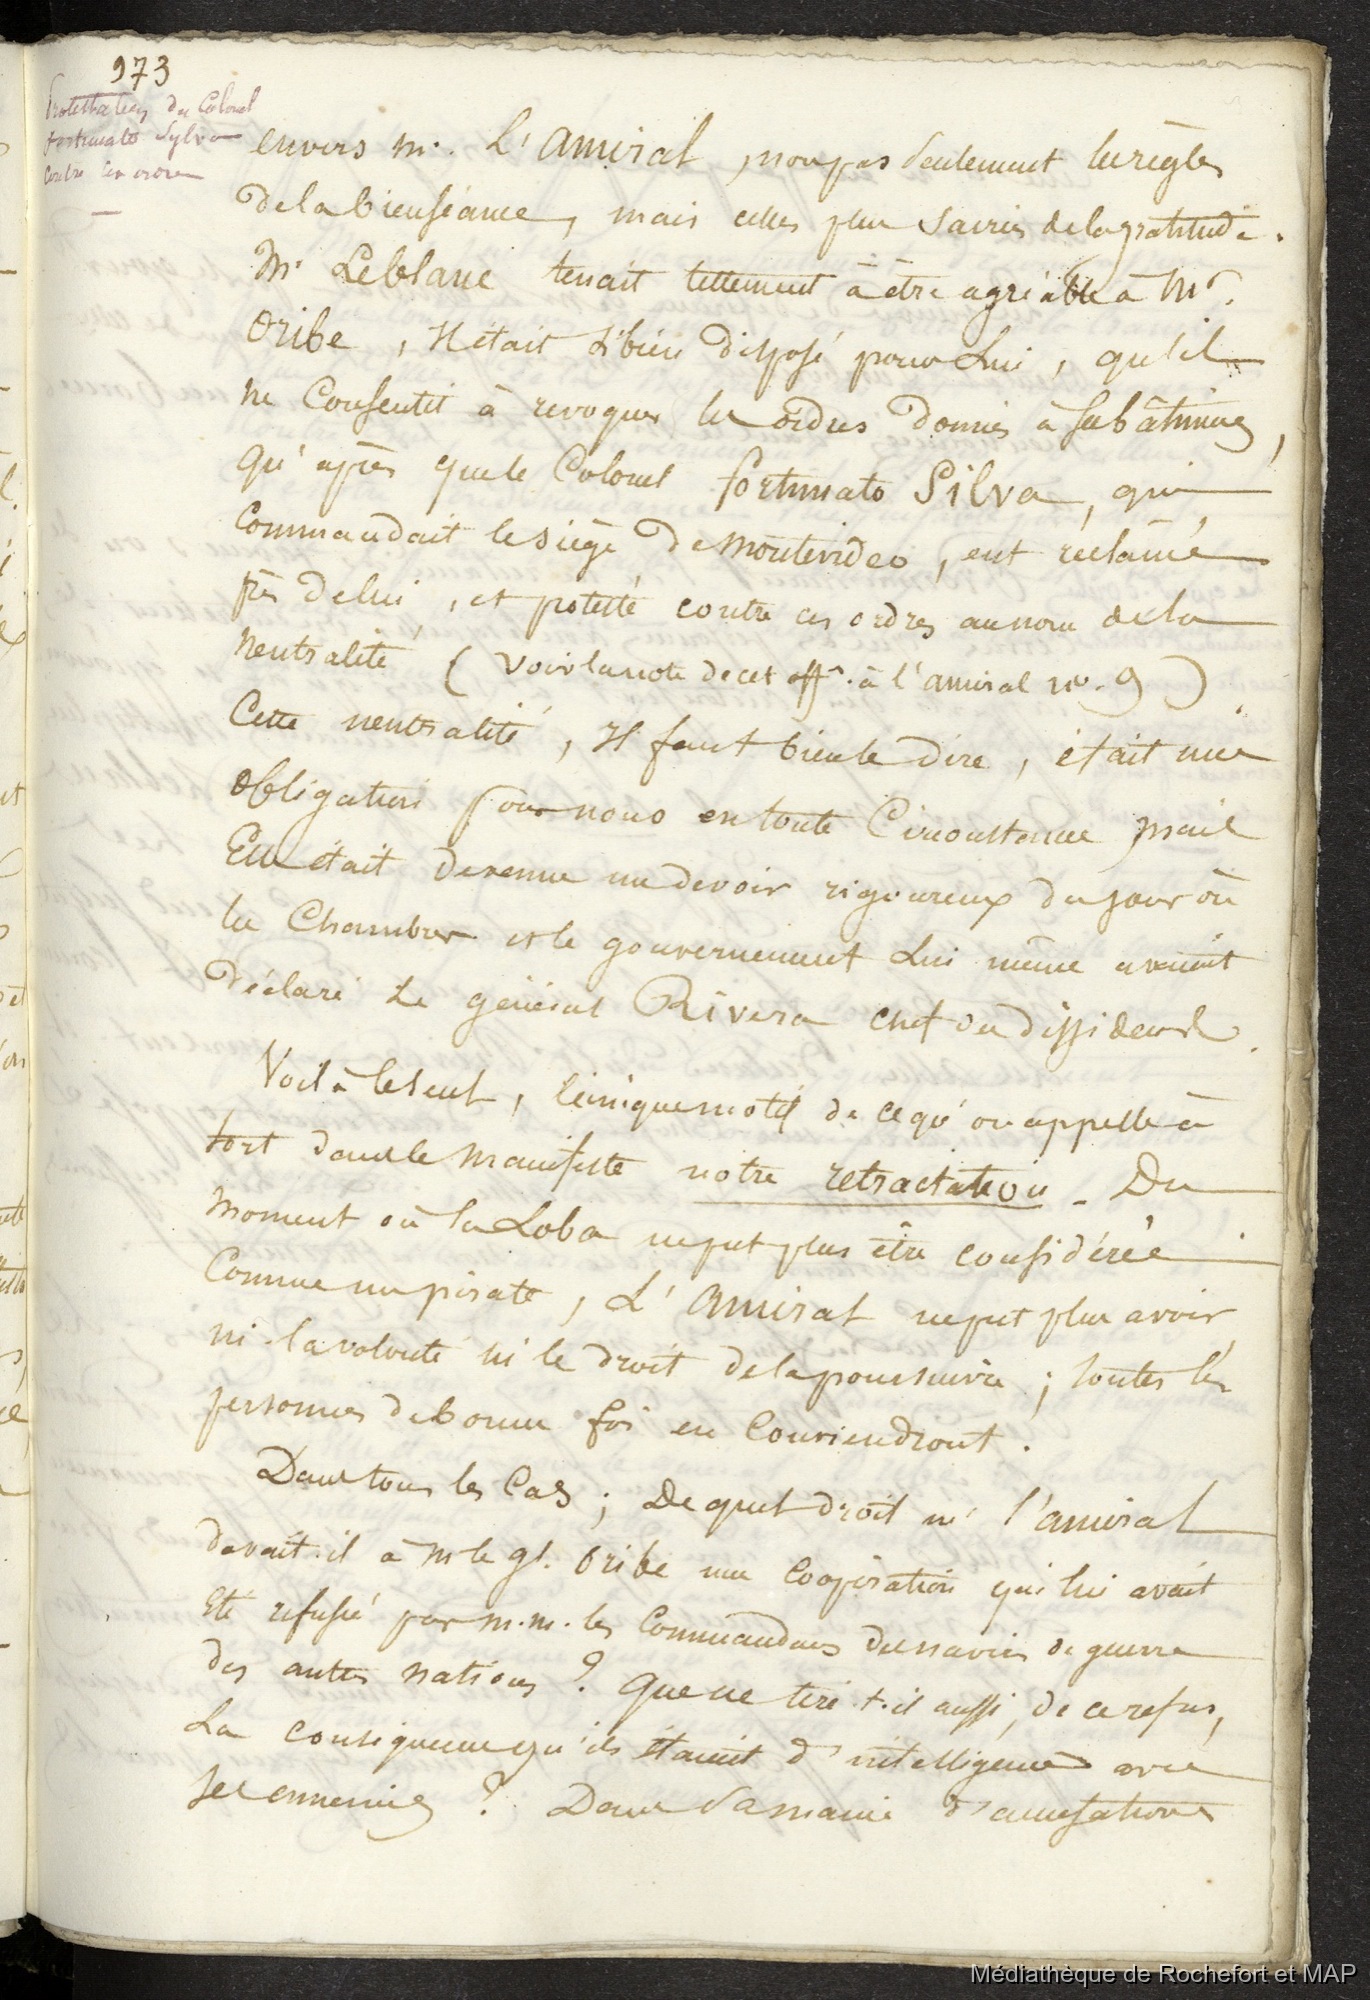 973
Protestation du Colonel
fortunato Sylva
contre les ordres
envers Mr. L'amiral, non pas seulement les règles
de la bienséance, mais celles plus sacrées de la gratitude.
Mr Leblanc tenait tellement à être agréable à Mr.
Oribe, Il était si bien disposé pour Lui, qu'il
ne Consentit à révoquer les ordres donnés à ses bâtimens,
qu'après que le Colonel fortunato Silva, qui
Commandait le siège de Montevideo, eut réclamé
près de lui, et protesté contre ces ordres au nom de la
neutralité (voir la note de cet offr. à l'amiral No. 9).
Cette neutralité, Il faut bien le dire, était une
obligation pour nous en toute Circonstance, mais
Elle était devenue un devoir rigoureux du jour où
les Chambres et le gouvernement lui même avaient
déclaré le général Rivera chef du dissident.
Voilà le seul, l'unique motif de ce qu'on appelle à
tort dans le Manifeste notre retractation - Du
moment où la Loba ne put plus être considérée
Comme un pirate, L'amiral ne put plus avoir
ni la volonté ni le droit de la poursuivre; toutes les
personnes de bonne foi en Conviendront.
Dans tous les Cas; De quel droit l'amiral
devait-il à M le gl. Oribe une Coopération qui lui avait
été refusée par M.M. les Commandans des navires de guerre
des autres nations? Que ne tire-t-il aussi, de ce refus,
La conséquence qu'ils étaient d'intelligence avec
ses ennemis? Dans sa manie d'accusations